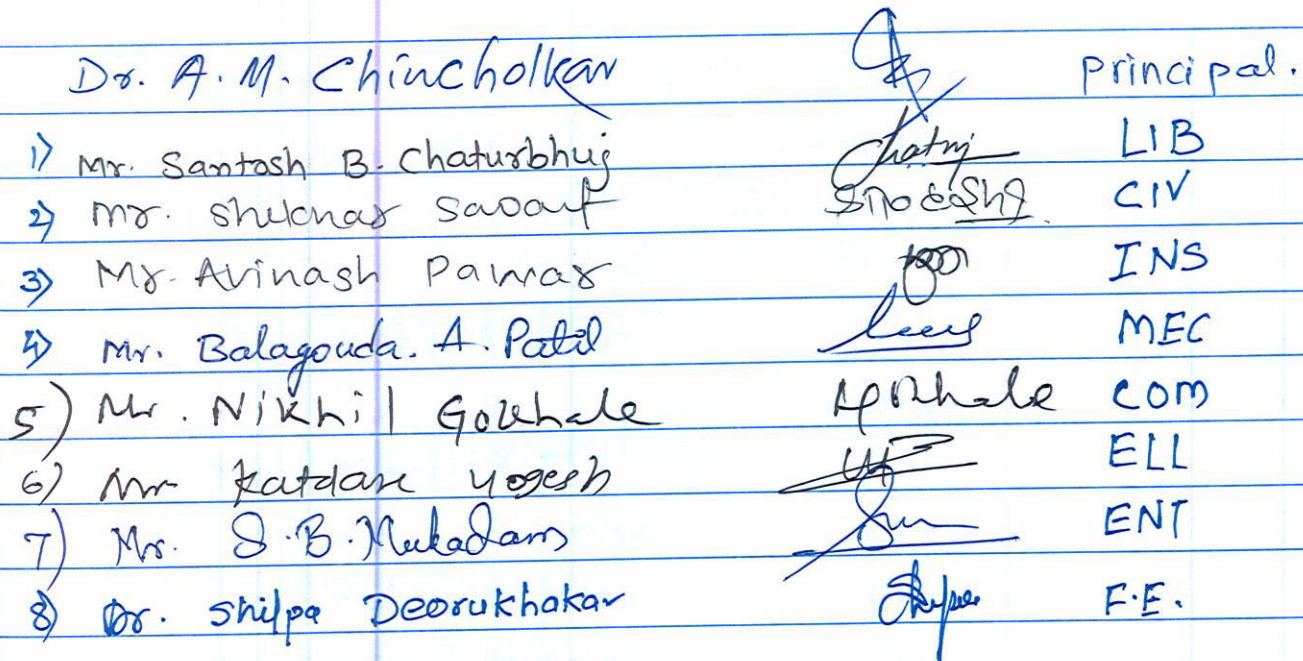 Dr. A. M. Chincholkar Principal.
1) Mr. Santosh B. Chaturbhuj LIB
2) Mr. Shekhar Savant CIV
3) Mr. Avinash Pawar INS
4) Mr. Balagouda. A. Patil MEC
5) Mr. Nikhil Gokhale Gokhale COM
6) Mr Katdare Yogesh ELL
7) Mr. S. B. Mukadam ENT
8) Dr. Shilpa Deorukhakar F.E.